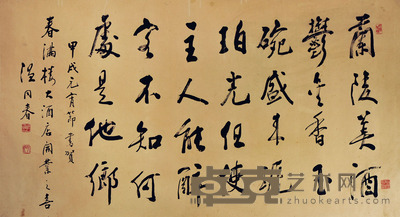 蘭陵美酒
鬱金香玉
碗盛来琥
珀光但使
主人能醉
客不知何
處是他鄉
甲戌元宵節書賀
春滿樓大酒店開業之喜
温同春